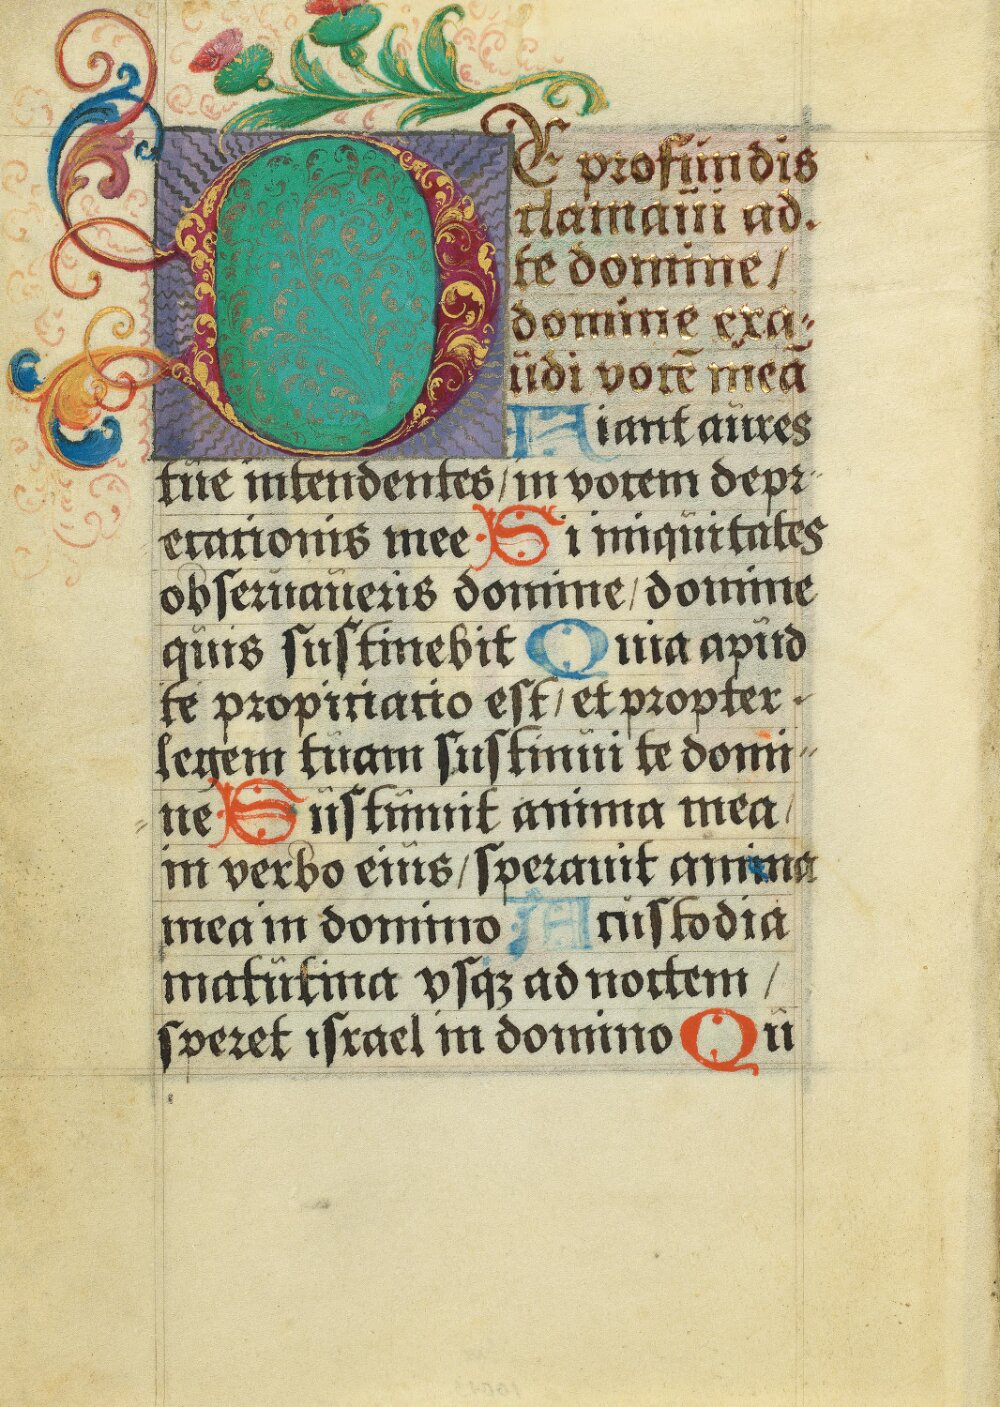 DE profundis
clamaui ad
te domine /
domine exa-
udi vocē meā
Fiant aures
tue intendentes / in vocem depr-
ecationis mee Si iniquitates
obseruaueris domine / domine
quis sustinebit Quia apud
te propiciacio est / et propter
legem tuam sustinui te domi-
ne Sustinuit anima mea /
in verbo eius / sperauit anima
mea in domino A custodia
matutina vsqꝫ ad noctem /
speret israel in domino Qu